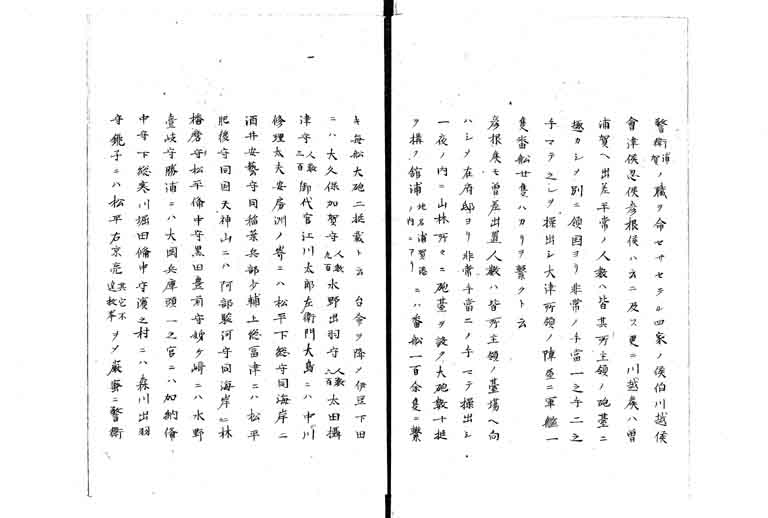 警衛浦賀ノ職ヲ命セサセラル四家ノ侯伯川越侯
會津侯忍侯彦根侯ハ云ニ及ス更ニ川越矦ハ曽
浦賀ヘ出差平常ノ人数ハ皆其所主領ノ砲臺ニ
趣カシメ別ニ領国ヨリ非常ノ手當一之手二之
手マテ之レヲ揆出シ大津所領ノ陣屋ニ軍艦一
隻畨舩廿隻ハカリヲ繋クト云
彦根矦モ曽差出置人数ハ皆所主領ノ臺場ヘ向
ハシメ在府邸ヨリ非常手當二ノ手マテ操出シ
一夜ノ内ニ山林所々ニ砲臺ヲ設ク大砲数十挺
ヲ構フ舘浦地名浦賀港ノ内ニアリニハ畨舩一百余隻ニ繋
キ毎舩大砲二挺載ト云　台令ヲ降メ伊豆下田
ニハ大久保加賀守人数九百水野出羽守人数六百太田攝
津守人数三百御代官江川太郎左衛門大島ニハ中川
修理太夫安房洲ノ嵜ニハ松平下総守同海岸ニ
酒井安藝守同稲葉兵部少輔上総富津ニハ松平
肥後守同国天神山ニハ阿部駿河守同海岸ニ林
播磨守松平備中守黒田豊前守姉ケ崎ニハ水野
壹岐守勝浦ニハ大岡兵庫頭一之宮ニハ加納備
中守下総寒川堀田備中守濱之村ニハ森川出羽
守銚子ニハ松平右京亮其它不遑枚挙ヲノ嚴密ニ警衛